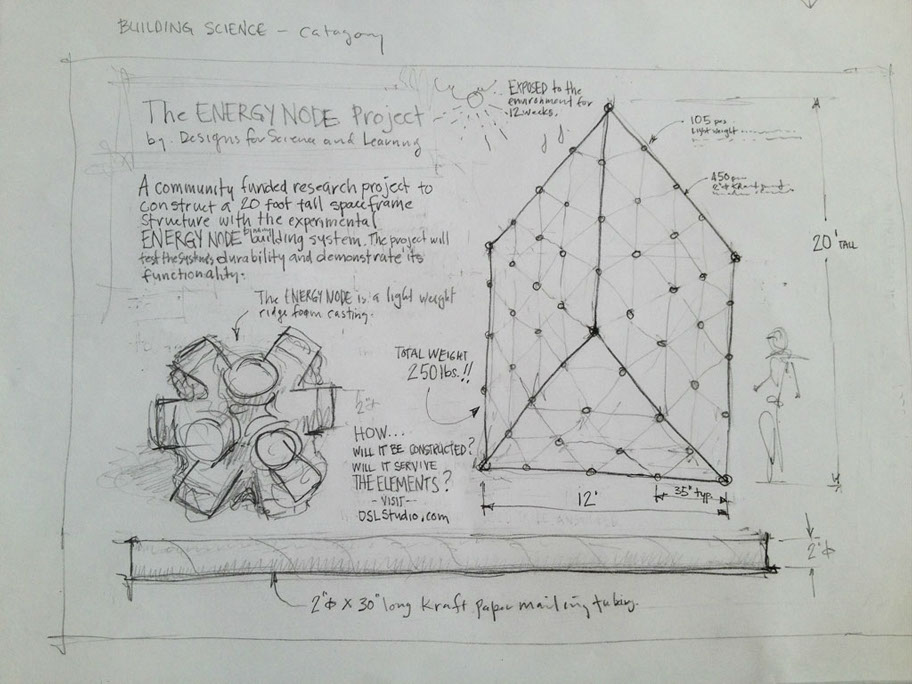 BUILDING SCIENCE - Catagory
The ENERGY NODE Project
by. Designs for Science and Learning
A community funded research project to
construct a 20 foot tall spaceframe
structure with the experimental
ENERGY NODE building system. The project will
test the systems durability and demonstrate its
functionality.
The ENERGY NODE is a light weight
ridge foam casting.
EXPOSED to the
environment for
12 weeks.
105 pcs
Light weight
450 pcs
20' TALL
TOTAL WEIGHT
250 lbs.!!
2"ϕ
HOW...
WILL IT BE CONSTRUCTED?
WILL IT SERVIVE
THE ELEMENTS?
- VISIT -
DSLStudio.com
12'
35" typ.
2"ϕ
2"ϕ X 30" long Kraft paper mailing tubing.